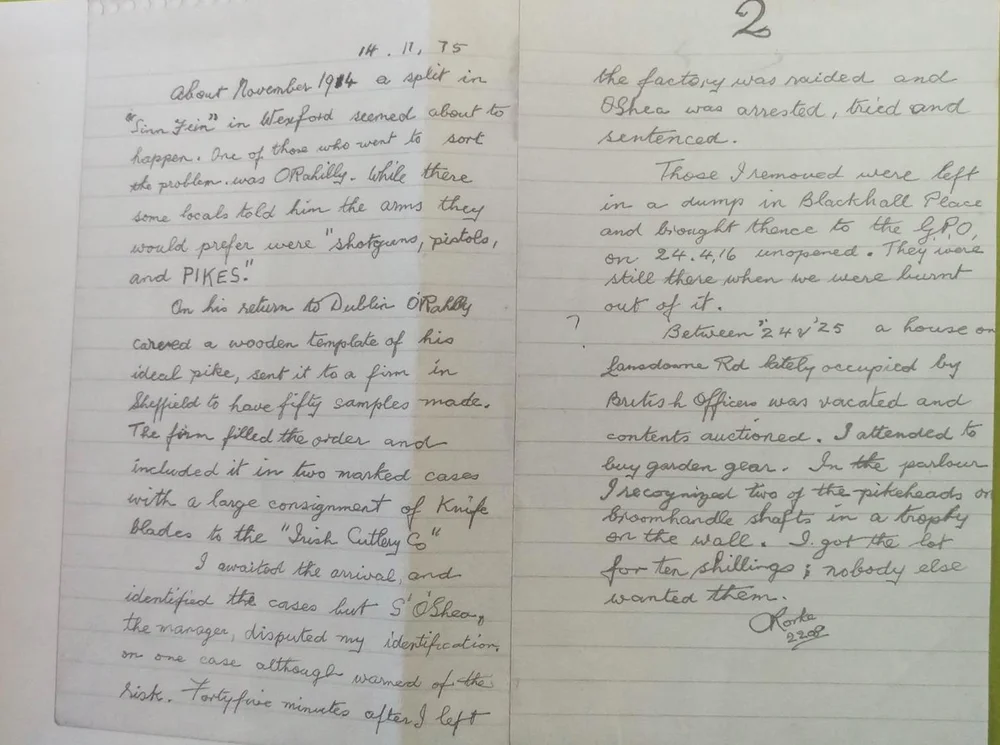 14.11.75
About November 1914 a split in
"Sinn Fein" in Wexford seemed about to
happen. One of those who went to sort
the problem was ORahilly. While there
some locals told him the arms they
would prefer were "shotguns, pistols,
and PIKES."
On his return to Dublin O'Rahilly
carved a wooden template of his
ideal pike, sent it to a firm in
Sheffield to have fifty samples made.
The firm filled the order and
included it in two marked cases
with a large consignment of Knife
blades to the "Irish Cutlery Co"
I awaited the arrival, and
identified the cases but S' O'Shea,
the manager, disputed my identification,
on one case although warned of the
risk. Fortyfive minutes after I left
2
the factory was raided and
OShea was arrested, tried and
sentenced.
Those I removed were left
in a dump in Blackhall Place
and brought thence to the G.P.O,
on 24.4.16 unopened. They were
still there when we were burnt
out of it.
? Between '24 v '25 a house on
Lansdowne Rd lately occupied by
British Officers was vacated and
contents auctioned. I attended to
buy garden gear. In the parlour
I recognized two of the pikeheads on
broomhandle shafts in a trophy
on the wall. I got the lot
for ten shillings; nobody else
wanted them.
ORorke